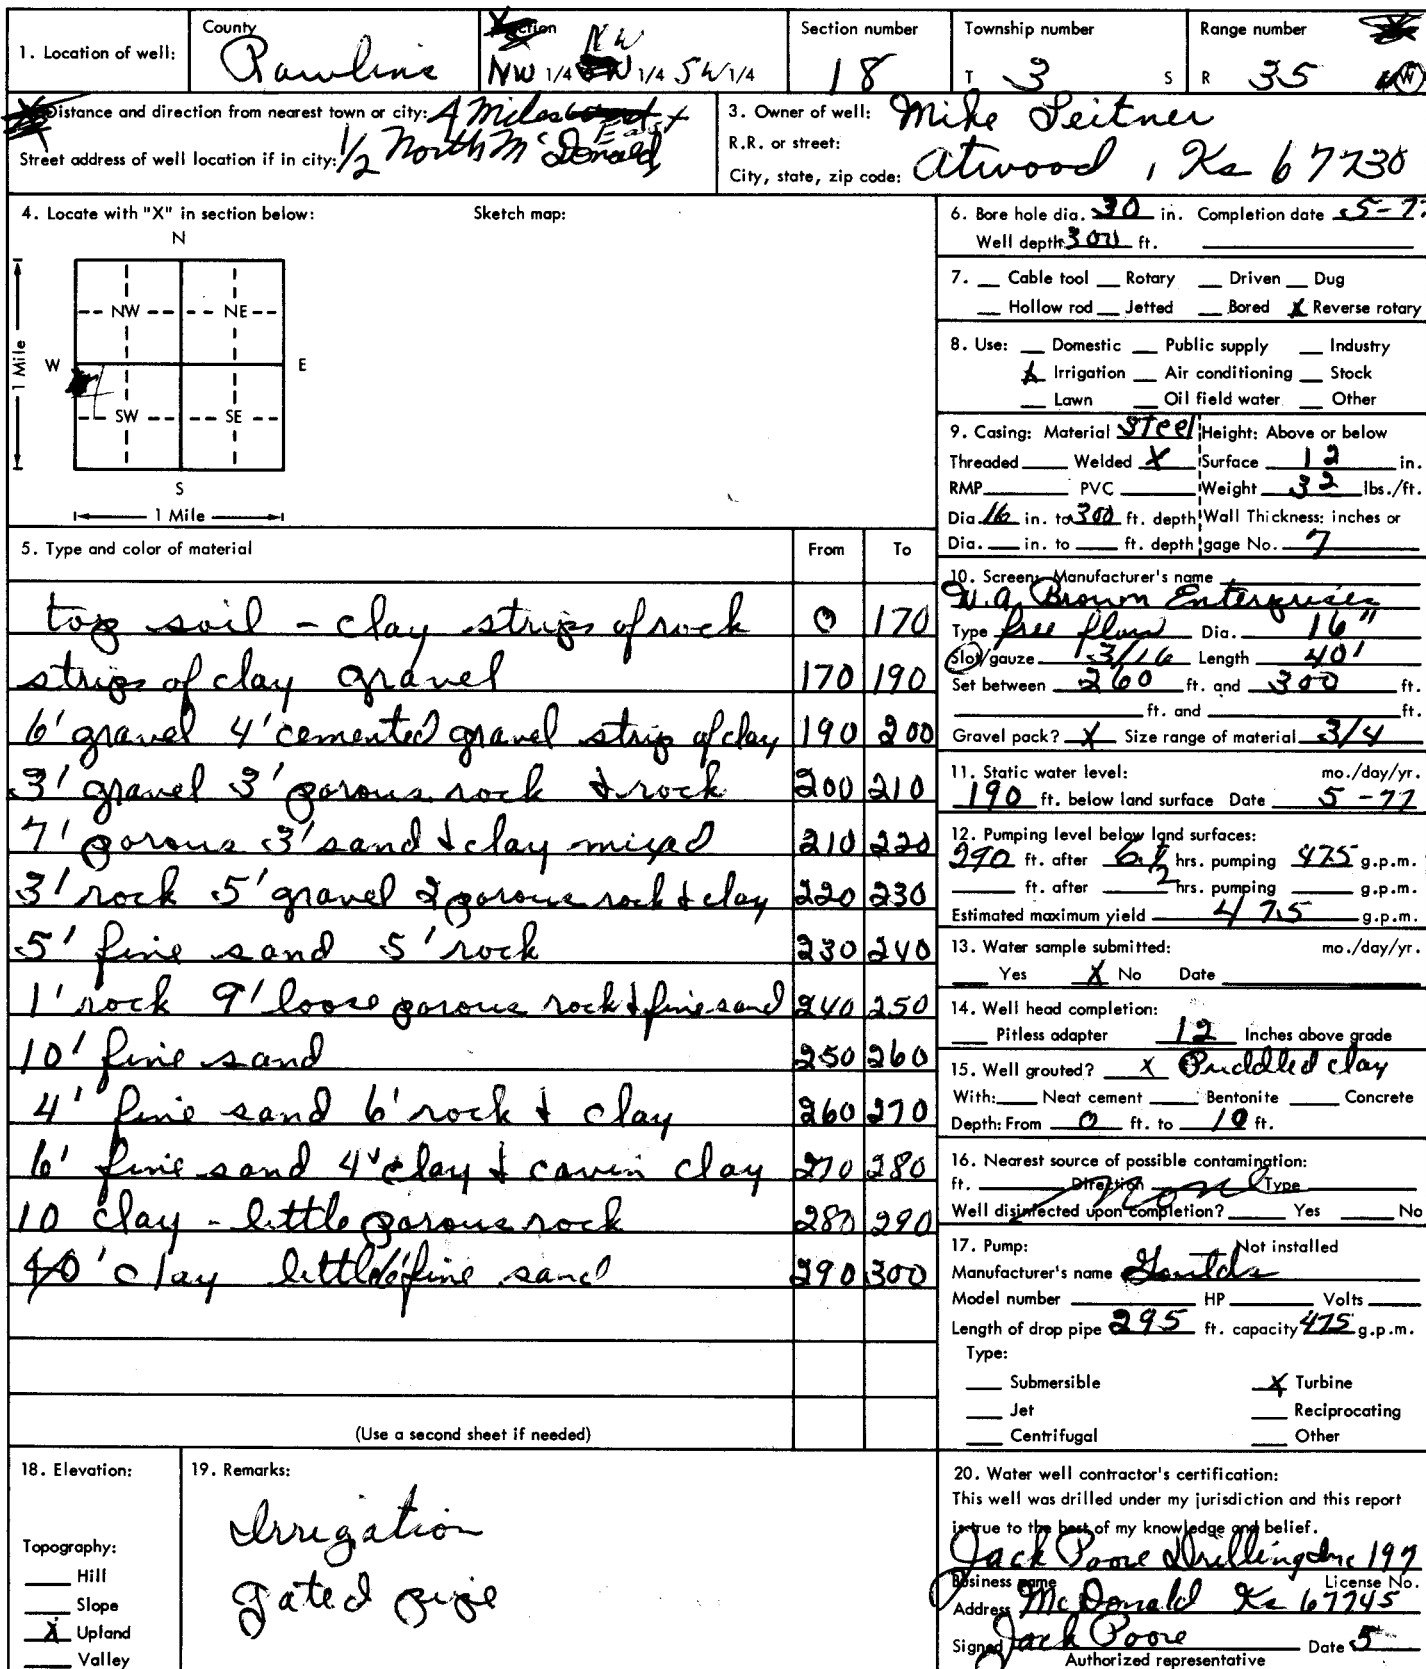 1. Location of well: County Rawlins NW 1/4 NW 1/4 SW 1/4 Section number 18 Township number T 3 S Range number R 35 W
Distance and direction from nearest town or city: 4 Miles East
Street address of well location if in city: 1/2 North McDonald
3. Owner of well: Mike Leitner
R.R. or street:
City, state, zip code: Atwood, Ks 67730
4. Locate with "X" in section below: Sketch map:
N
NW NE
W E
SW SE
S
1 Mile
1 Mile
5. Type and color of material From To
top soil - clay strips of rock 0 170
strips of clay gravel 170 190
6' gravel 4' cemented gravel strip of clay 190 200
3' gravel 3' porous rock & rock 200 210
7' porous 3' sand & clay mixed 210 220
3' rock 5' gravel 2 porous rock & clay 220 230
5' fine sand 5' rock 230 240
1' rock 9' loose porous rock & fine sand 240 250
10' fine sand 250 260
4' fine sand 6' rock & clay 260 270
6' fine sand 4' clay & cavin clay 270 280
10 clay - little porous rock 280 290
clay little fine sand 290 300
(Use a second sheet if needed)
6. Bore hole dia. 30 in. Completion date 5-7
Well depth 300 ft.
7. Cable tool Rotary Driven Dug
Hollow rod Jetted Bored X Reverse rotary
8. Use: Domestic Public supply Industry
X Irrigation Air conditioning Stock
Lawn Oil field water Other
9. Casing: Material Steel Height: Above or below
Threaded Welded X Surface 12 in.
RMP PVC Weight 32 lbs./ft.
Dia. 16 in. to 300 ft. depth Wall Thickness: inches or
Dia. in. to ft. depth gage No. 7
10. Screen: Manufacturer's name
W.A. Brown Enterprises
Type free flow Dia. 16"
Slot/gauze 3/16 Length 40'
Set between 260 ft. and 300 ft.
ft. and ft.
Gravel pack? X Size range of material 3/4
11. Static water level: mo./day/yr.
190 ft. below land surface Date 5-77
12. Pumping level below land surfaces:
290 ft. after hrs. pumping 475 g.p.m.
ft. after hrs. pumping g.p.m.
Estimated maximum yield 475 g.p.m.
13. Water sample submitted: mo./day/yr.
Yes X No Date
14. Well head completion:
Pitless adapter 12 Inches above grade
15. Well grouted? X Puddled clay
With: Neat cement Bentonite Concrete
Depth: From 0 ft. to 10 ft.
16. Nearest source of possible contamination:
ft. Direction Type none
Well disinfected upon completion? Yes No
17. Pump: Not installed
Manufacturer's name Goulds
Model number HP Volts
Length of drop pipe 295 ft. capacity 475 g.p.m.
Type:
Submersible X Turbine
Jet Reciprocating
Centrifugal Other
18. Elevation:
Topography:
Hill
Slope
X Upland
Valley
19. Remarks:
Irrigation
gated pipe
20. Water well contractor's certification:
This well was drilled under my jurisdiction and this report
is true to the best of my knowledge and belief.
Jack Poore Drilling Inc 197
Business name License No.
Address McDonald Ks 67745
Signed Jack Poore Date 5
Authorized representative